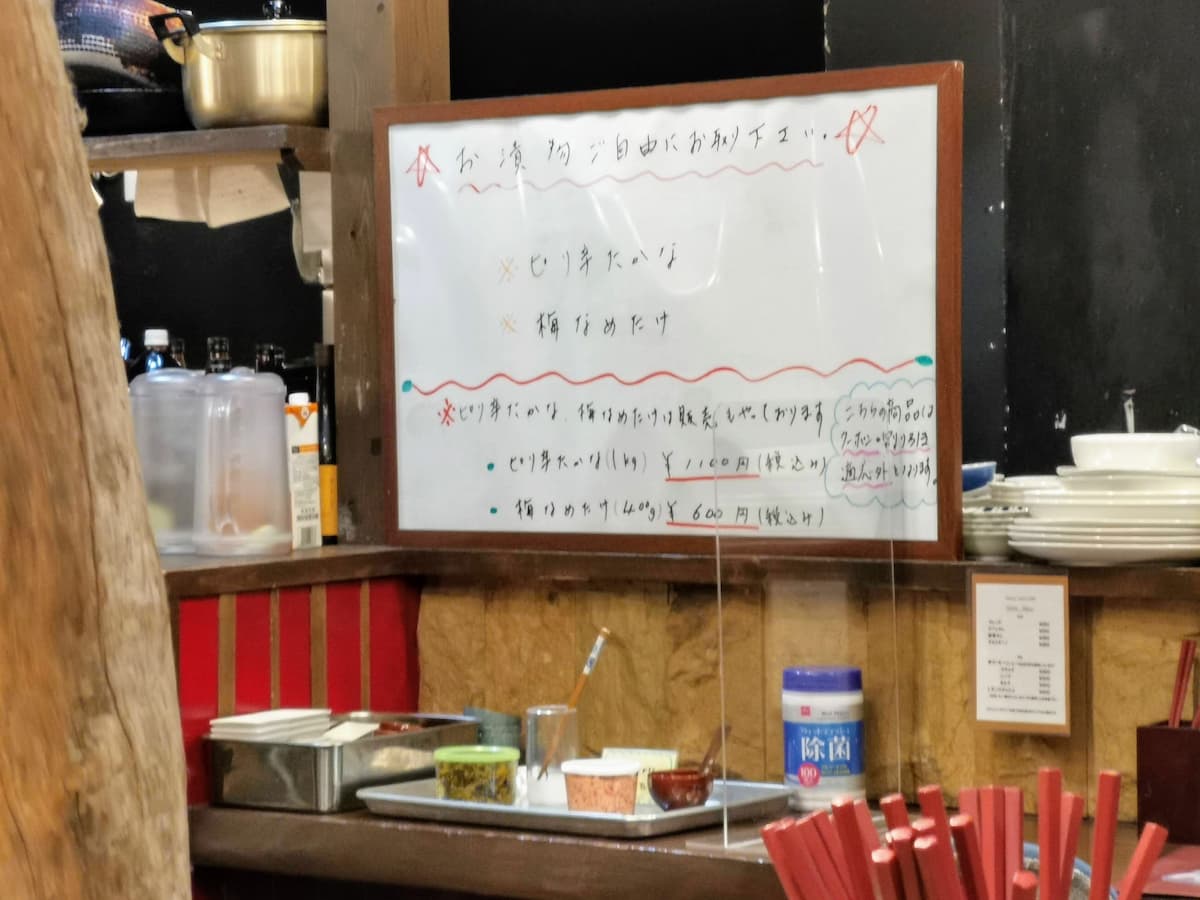 ☆ お漬物ご自由にお取り下さい。☆
※ ピリ辛たかな
※ 梅なめたけ
※ピリ辛たかな、梅なめたけは販売もやっております
・ピリ辛たかな(1kg) ¥1100円(税込み)
・梅なめたけ(400g) ¥600円(税込み)
こちらの商品は
クーポンの割り引き
適応外となります。
除菌
100